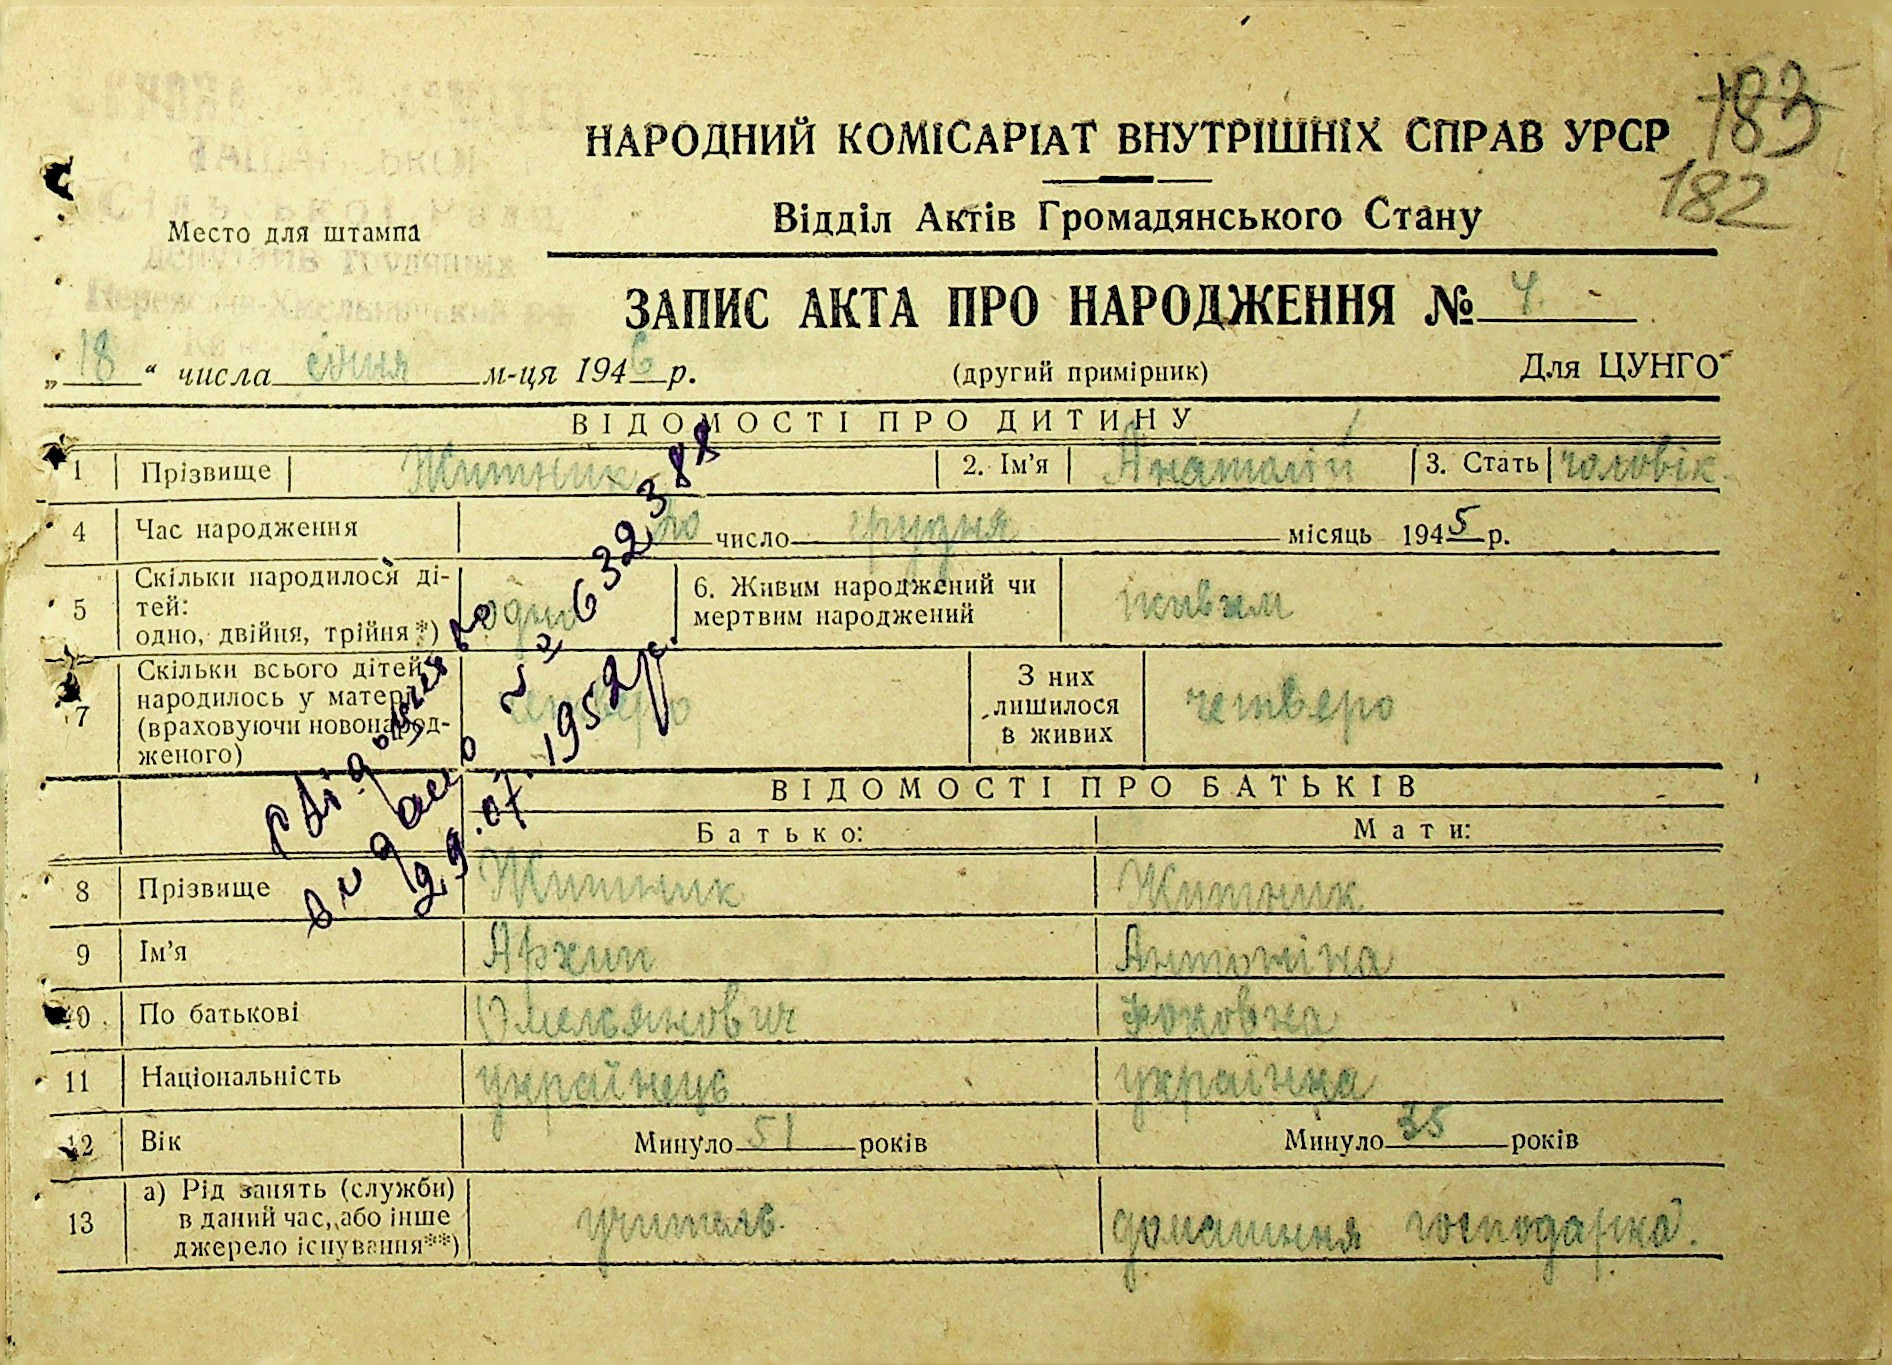 183
182
НАРОДНИЙ КОМІСАРІАТ ВНУТРІШНІХ СПРАВ УРСР
Відділ Актів Громадянського Стану
Место для штампа
ЗАПИС АКТА ПРО НАРОДЖЕННЯ № 4
„18“ числа січня м-ця 1946 р.
(другий примірник)
Для ЦУНГО
ВІДОМОСТІ ПРО ДИТИНУ
1 Прізвище Житник 2. Ім'я Анатолій 3. Стать чоловік
4 Час народження число грудня місяць 1945 р.
5 Скільки народилося ді-
тей:
одно, двійня, трійня*) одно
6. Живим народжений чи
мертвим народжений живим
7 Скільки всього дітей
народилось у матері
(враховуючи новонарод-
женого) четверо
З них
лишилося
в живих четверо
видано
29.07.1952 р.
ВІДОМОСТІ ПРО БАТЬКІВ
Батько: Мати:
8 Прізвище Житник Житник
9 Ім'я Архип Антоніна
10 По батькові Омелянович
11 Національність українець українка
12 Вік Минуло 51 років Минуло 35 років
13 а) Рід занять (служби)
в даний час, або інше
джерело існування**) учитель домашня господарка.